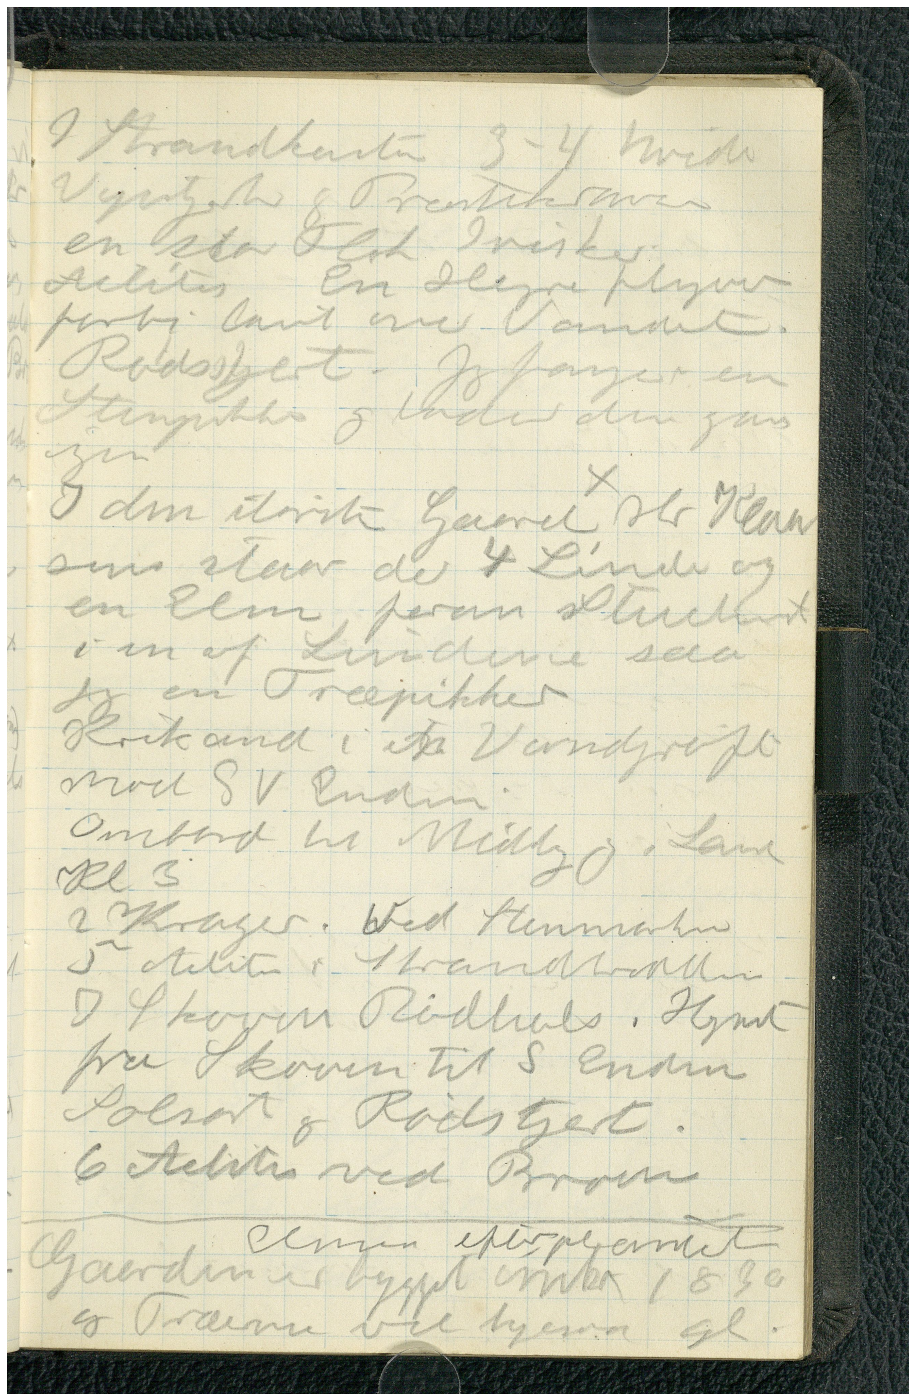 I Strandkanten 3-4 hvide
Vipstjerter & Præstekraver
en stor Flok Irisker.
Actitis En Hejre flyver
forbi lavt over Vandet.
Rødstjert. Jeg fanger en
Stenpikker & lader den gaa
igen
I den største Gaard x Hr Klau
sens staar der 4 Linde og
en Elm foran Stuehuset
i en af Lindene saa
jeg en Træpikker
Krikand i en Vandgrøft
mod SV Enden.
Ombord til Middag, i Land
Kl 3
2 Krager. Ved
5 Actitis i Strandbredden
I Skoven Rødhals. Hørt
fra Skoven til S Enden
Solsort & Rødstjert.
6 Actitis ved Broen
Elmen efterplantet
Gaarden er bygget 1830
& Træerne vel ligesaa gl.